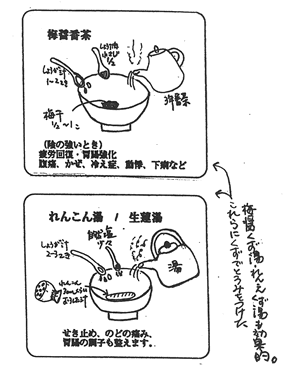 梅醤番茶
しょうゆ
小さじ
1/2
しょうが汁
1〜2てき
梅干
1/2〜1コ
3年番茶
(陰の強いとき)
疲労回復・胃腸強化
腹痛、かぜ、冷え症、動悸、下痢など
れんこん湯 / 生蓮湯
自然塩
少々
しょうが汁
2〜3てき
湯
れんこん
3cmくらい
せき止め、のどの痛み、
胃腸の調子も整えます。
梅醤くず湯、れんこんくず湯も効果的。
これらにくずでとろみをつけた